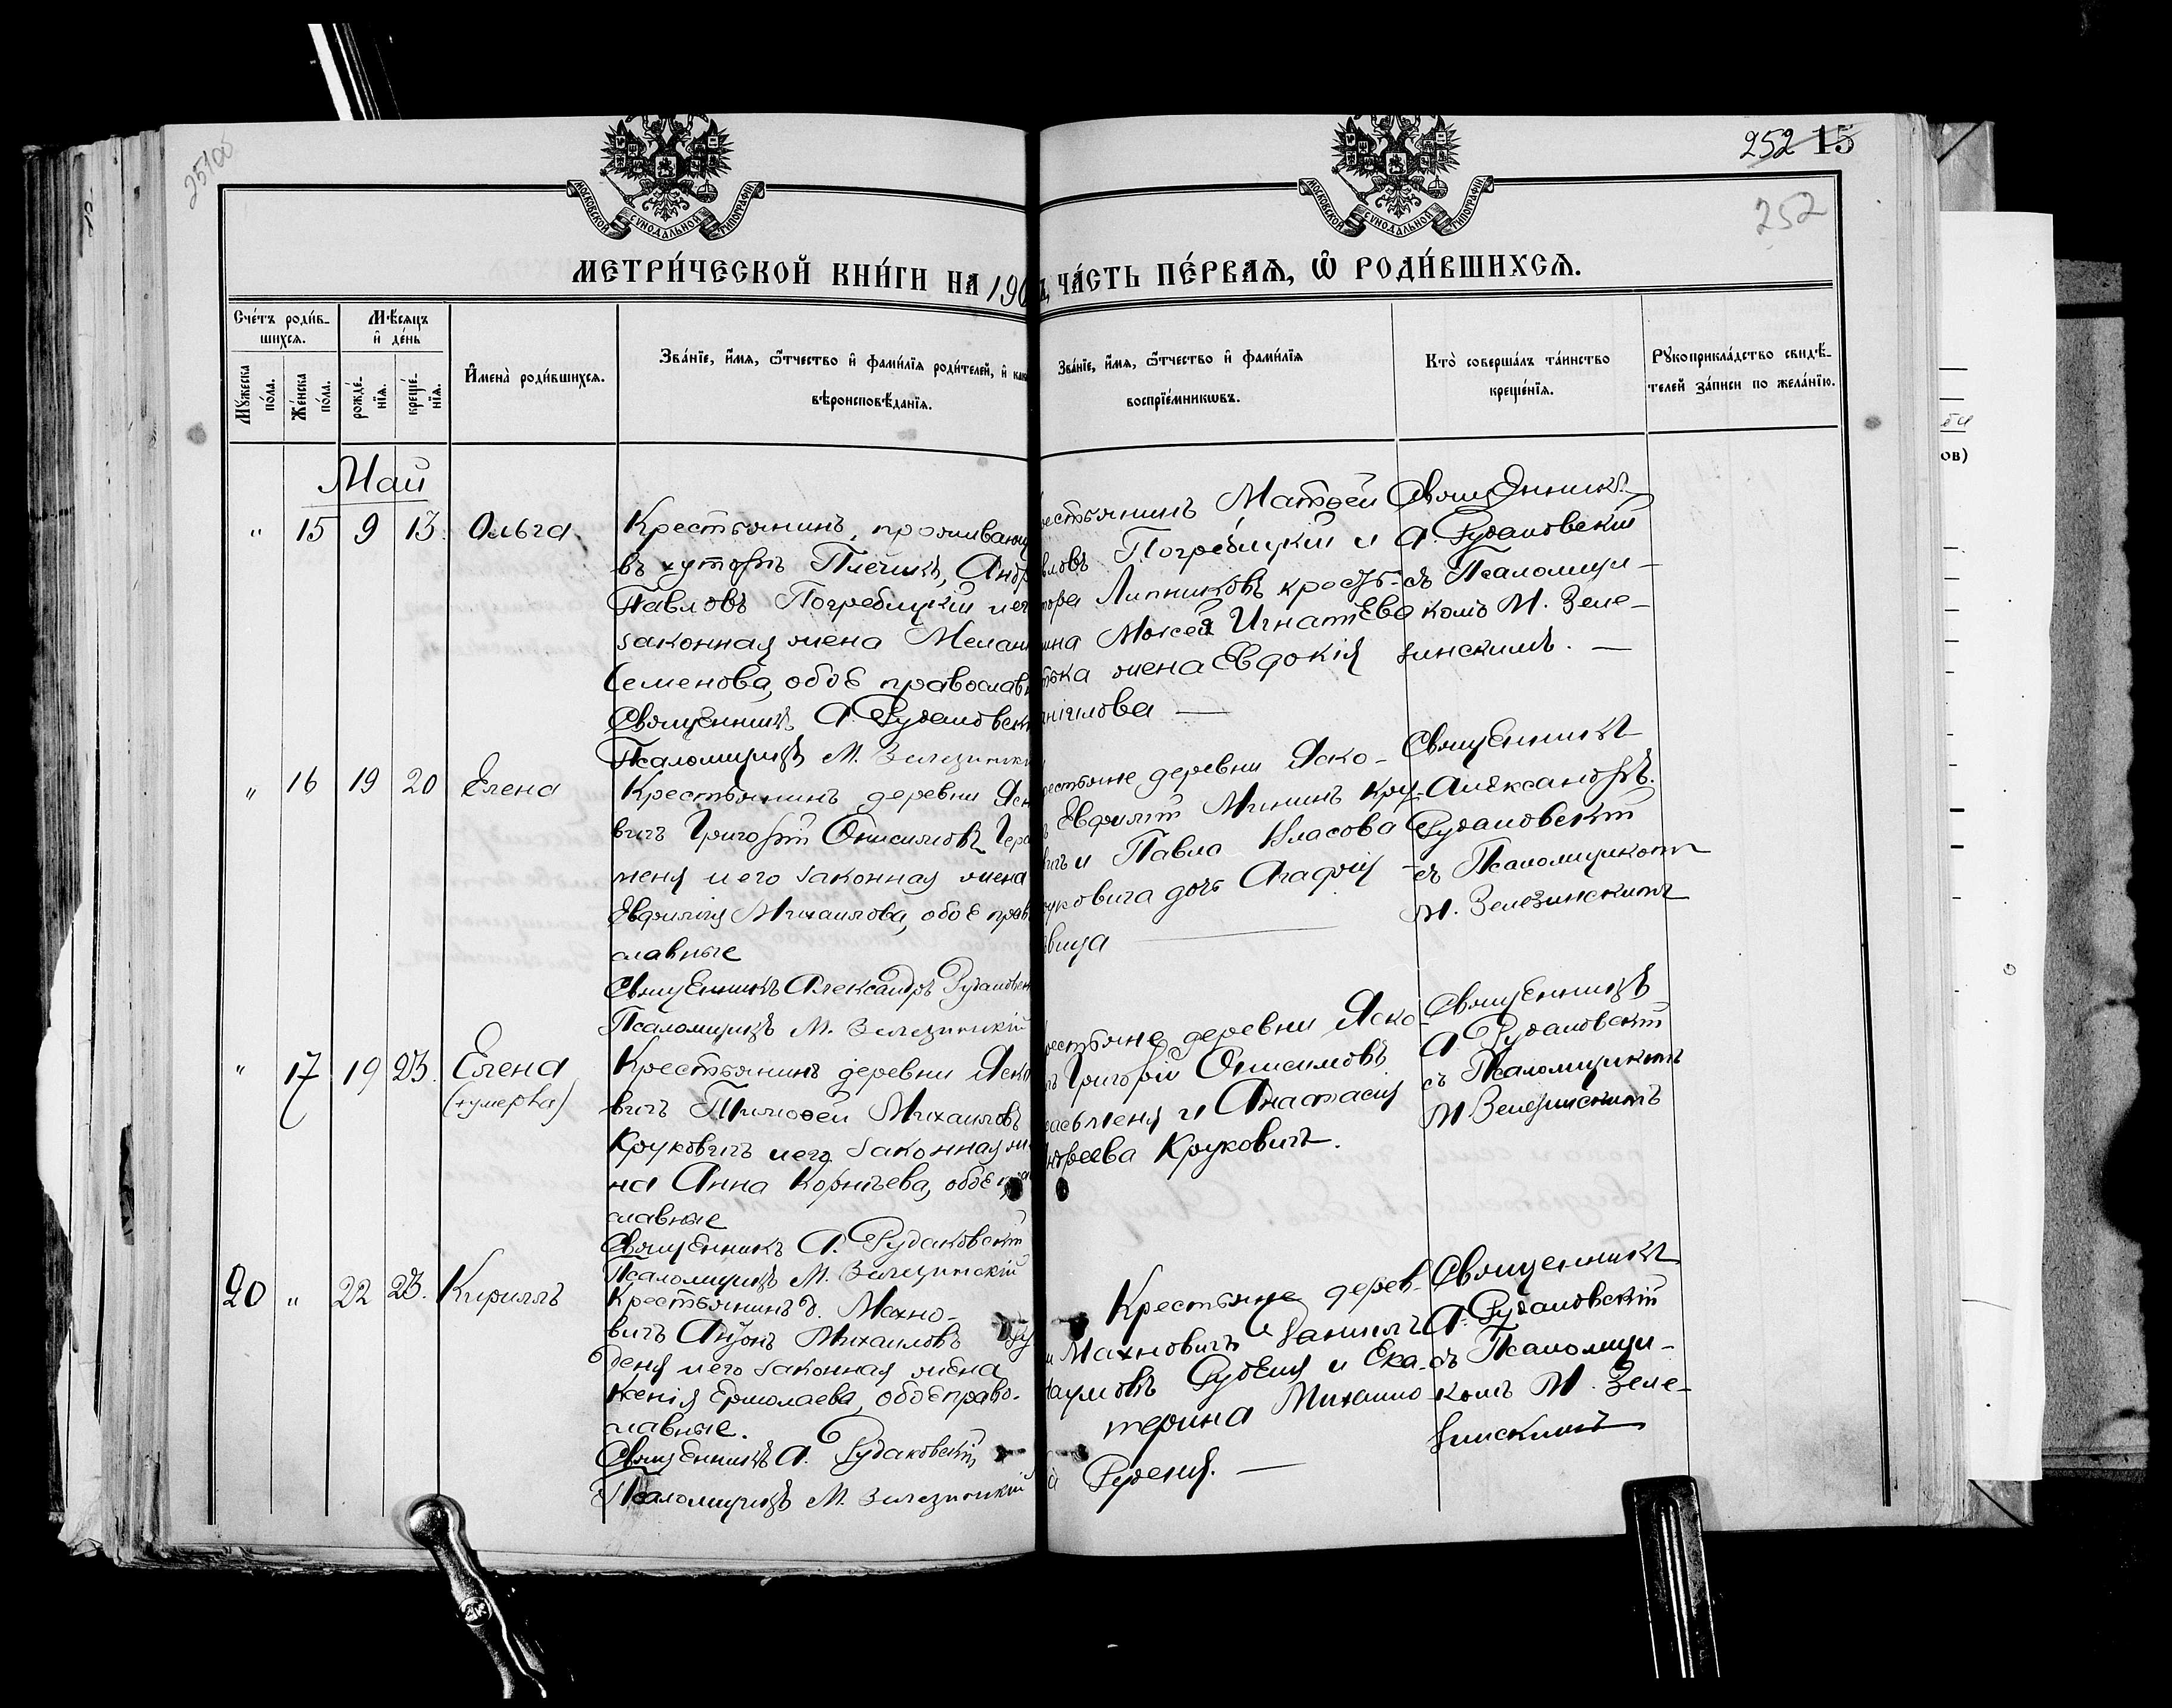 252 15
252
25100
МОСКОВСКОЙ СѴНОДАЛЬНОЙ ТИПОГРАФІИ
МОСКОВСКОЙ СѴНОДАЛЬНОЙ ТИПОГРАФІИ
МЕТРИ́ЧЕСКОЙ КНИ́ГИ НА 190
ЧА́СТЬ ПЕ́РВАѦ, Ѽ РОДИ́ВШИХСѦ.
Сче́тъ роди́в-
шихсѧ.
Мꙋжеска по́ла.
Же́нска по́ла.
Мѣ́сѧцъ
и҆ де́нь
рожде́-нїѧ.
креще́-нїѧ.
И҆мена̀ роди́вшихсѧ.
Зва́нїе, и҆́мѧ, ѻ҆́тчество и҆ фами́лїѧ роди́телей, и҆
вѣроисповѣ́данїѧ.
Зва́нїе, и҆́мѧ, ѻ҆́тчество и҆ фами́лїѧ
воспрїе́мникѡвъ.
Кто̀ соверша́лъ та́инство
креще́нїѧ.
Рꙋкоприкла́дство свидѣ́-
телей за́писи по жела́нїю.
Май
" 15 9 13. Ольга
Крестьянинъ, проживающ
въ хуторѣ Плечикъ, Андр
Павловъ Погребицкій и ег
законная жена Мелан
Семенова, обоѣ православ
Священникъ А. Рудаковск
Псаломщикъ М. Зелезинск
естьянинъ Матѳей
вловъ Погребицкій и
тора Липниковъ кресть-
нина Моисея Игнатьева
жена Евдокія
Священникъ
А. Рудаковскій
съ Псаломщи-
комъ М. Зеле-
зинскимъ. —
" 16 19 20 Елена
Крестьянинъ деревни Яск
вичъ Григорій Онисимовъ Гера
меня и его законная жена
Евфимія Михаилова, обоѣ прав
славные
Священникъ Александръ Рудаковск
Псаломщикъ М. Зелезинскій
естьяне деревни Яско-
Евфимій Мининъ Кру-
вичъ и Павла Власова
уковича дочь Агафія
вица
Священникъ
Александръ
Рудаковскій
съ Псаломщикомъ
М. Зелезинскимъ
" 17 19 23. Елена
(+умерла)
Крестьянинъ деревни Яско
вичъ Тимоѳей Михаиловъ
Круковичъ и его законная же
на Анна Корнѣева, обоѣ пра
славные
Священникъ А. Рудаковскій
Псаломщикъ М. Зелезинскій
естьяне деревни Яско-
Григорій Онисимовъ
расьменя и Анастасія
ндреева Круковичъ.
Священникъ
А. Рудаковскій
съ Псаломщикомъ
М Зелезинскимъ
20 " 22 23. Кириллъ
Крестьянинъ д. Махно-
вичъ Антонъ Михаиловъ Ру
деня и его законная жена
Ксенія Ермолаева, обоѣ право-
славные.
Священникъ А. Рудаковскій
Псаломщикъ М. Зелезинскій
Крестьяне дерев-
и Махновичъ Даніилъ
Наумовъ Руденя и Ека-
терина Михаило
а Руденя. —
Священникъ
А. Рудаковскій
съ Псаломщи-
комъ М. Зеле-
зинскимъ